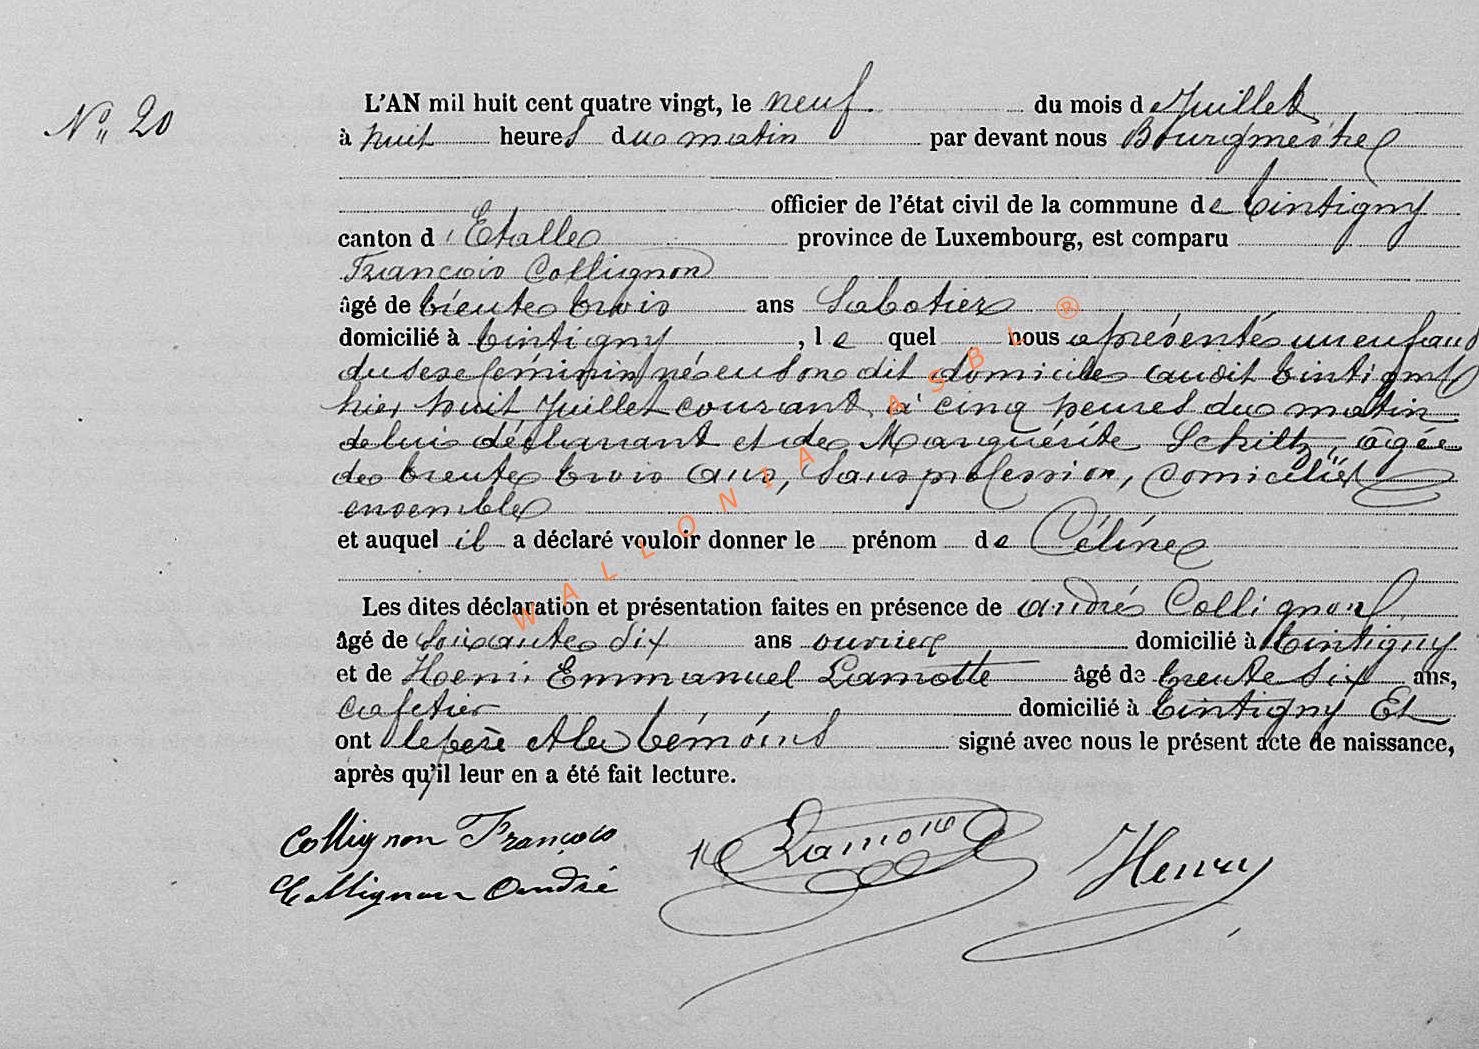 N° 20
L'AN mil huit cent quatre vingt, le neuf du mois de Juillet
à huit heures du matin par devant nous Bourgmestre
officier de l'état civil de la commune de Tintigny
canton d'Etalle province de Luxembourg, est comparu
François Collignon
âgé de trente trois ans Sabotier
domicilié à Tintigny, le quel nous a présenté un enfant
du sexe féminin, né en son dit domicile audit Tintigny
hier huit Juillet courant à cinq heures du matin
de lui déclarant et de Marguérite Schiltz, âgée
de trente trois ans, Sans profession, domiciliés
ensemble
et auquel il a déclaré vouloir donner le prénom de Céline
Les dites déclaration et présentation faites en présence de andré Collignon
âgé de soixante six ans ouvrier domicilié à Tintigny
et de Henri Emmanuel Lamotte âgé de trente six ans,
Cafetier domicilié à Tintigny Et
ont le père et les témoins signé avec nous le présent acte de naissance,
après qu'il leur en a été fait lecture.
Collignon François
Lamotte
Henry
Collignon André
WALLONIA ASBL ®